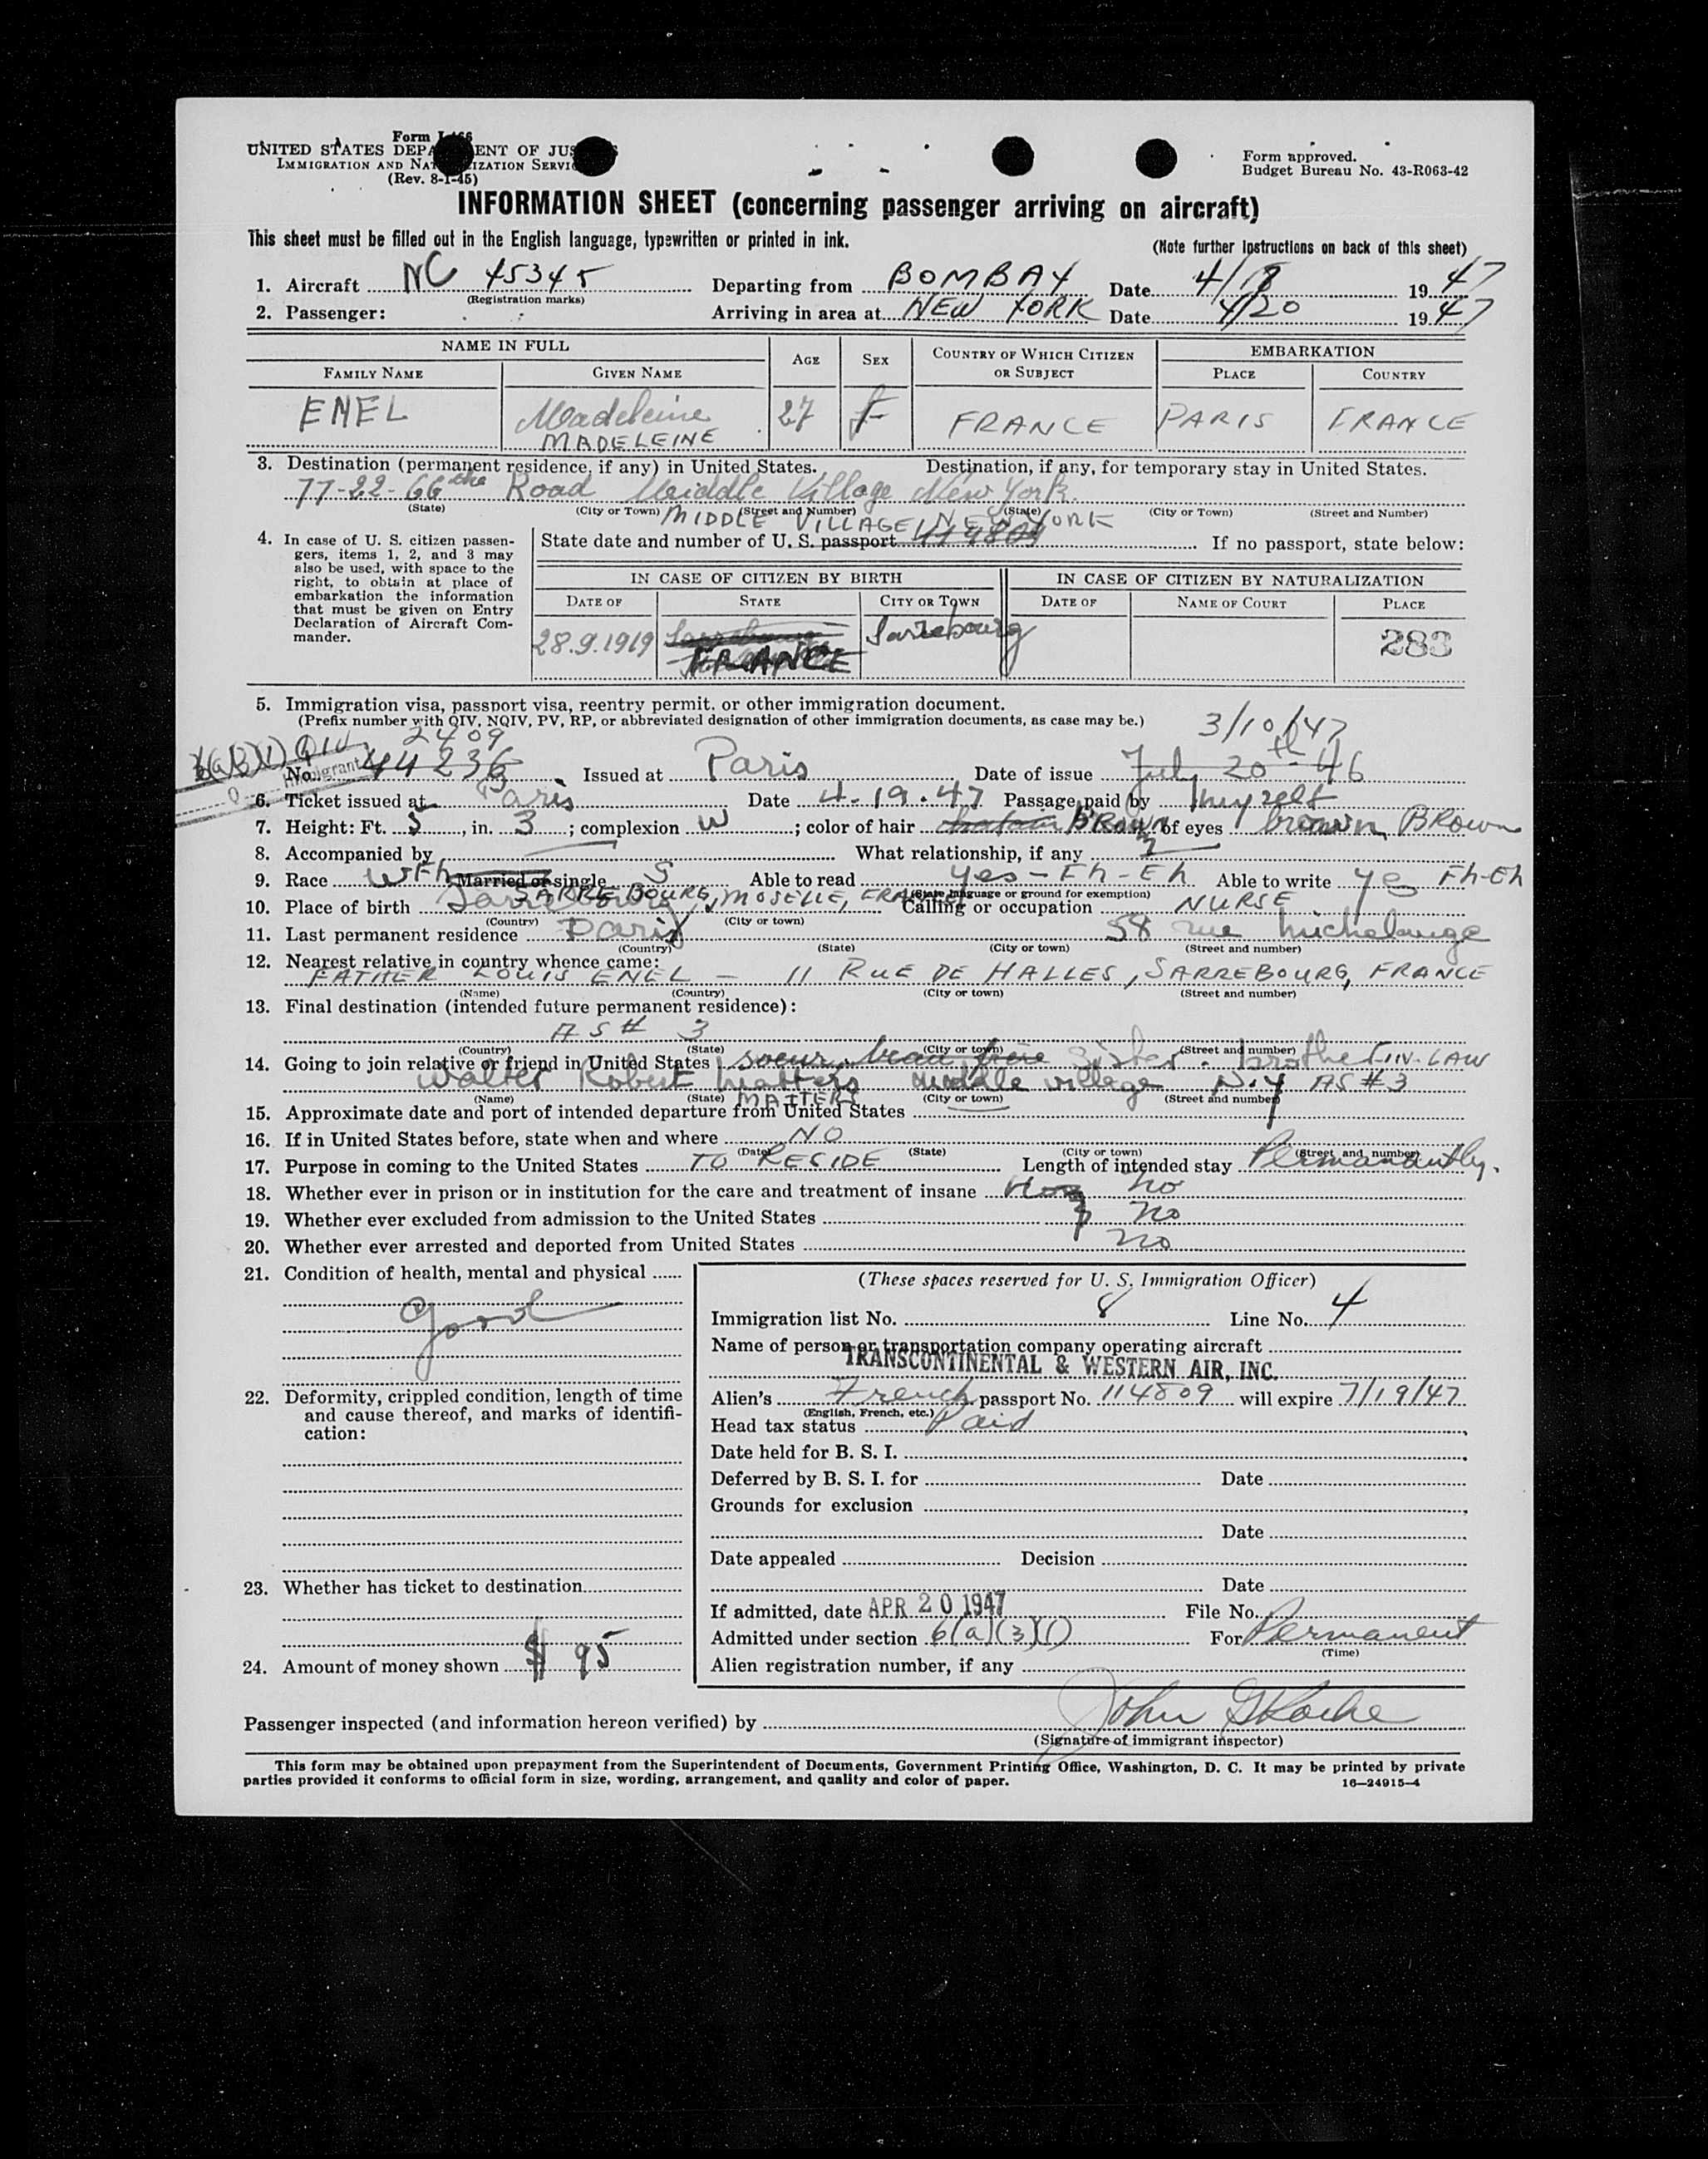 Form I-466
UNITED STATES DEPARTMENT OF JUSTICE
IMMIGRATION AND NATURALIZATION SERVICE
(Rev. 8-1-45)
Form approved.
Budget Bureau No. 43-R063-42
INFORMATION SHEET (concerning passenger arriving on aircraft)
This sheet must be filled out in the English language, typewritten or printed in ink.
(Note further instructions on back of this sheet)
1. Aircraft NC 45345 Departing from BOMBAY Date 4/18 1947
(Registration marks)
2. Passenger: Arriving in area at NEW YORK Date 4/20 1947
NAME IN FULL AGE SEX COUNTRY OF WHICH CITIZEN OR SUBJECT EMBARKATION
FAMILY NAME GIVEN NAME PLACE COUNTRY
ENEL Madeleine 27 f FRANCE PARIS FRANCE
MADELEINE
3. Destination (permanent residence, if any) in United States. Destination, if any, for temporary stay in United States.
77-22-66 the Road Middle Village New York
(State) (City or Town) (Street and Number) (State) (City or Town) (Street and Number)
MIDDLE VILLAGE, NEW YORK
4. In case of U. S. citizen passengers, items 1, 2, and 3 may also be used, with space to the right, to obtain at place of embarkation the information that must be given on Entry Declaration of Aircraft Commander.
State date and number of U. S. passport 114809 If no passport, state below:
IN CASE OF CITIZEN BY BIRTH IN CASE OF CITIZEN BY NATURALIZATION
DATE OF STATE CITY OR TOWN DATE OF NAME OF COURT PLACE
28.9.1919 FRANCE Sarrebourg 283
5. Immigration visa, passport visa, reentry permit, or other immigration document.
(Prefix number with QIV, NQIV, PV, RP, or abbreviated designation of other immigration documents, as case may be.)
2409 3/10/47
6(a)(3)(1) QIV
No. 44236 Issued at Paris Date of issue July 20th-46
6. Ticket issued at Paris Date 4.19.47 Passage paid by myself
7. Height: Ft. 5, in. 3; complexion W; color of hair BROWN of eyes brown BROWN
8. Accompanied by What relationship, if any
9. Race Married or single S Able to read yes-Fh-Eh Able to write yes Fh-Eh
(State language or ground for exemption)
SARREBOURG, MOSELLE, FRANCE
10. Place of birth Sarrebourg Calling or occupation NURSE
(Country) (City or town)
11. Last permanent residence Paris 58 rue Michelange
(Country) (State) (City or town) (Street and number)
12. Nearest relative in country whence came:
FATHER LOUIS ENEL - 11 RUE DE HALLES, SARREBOURG, FRANCE
(Name) (Country) (City or town) (Street and number)
13. Final destination (intended future permanent residence):
AS # 3
(Country) (State) (City or town) (Street and number)
14. Going to join relative or friend in United States soeur. beau frère Sister. brother-IN-LAW
Walter Robert Matters middle village N.Y AS #3
(Name) (State) (City or town) (Street and number)
MATTERS
15. Approximate date and port of intended departure from United States
16. If in United States before, state when and where NO
(Date) (State) (City or town) (Street and number)
17. Purpose in coming to the United States TO RESIDE Length of intended stay Permanantly.
18. Whether ever in prison or in institution for the care and treatment of insane no
19. Whether ever excluded from admission to the United States no
20. Whether ever arrested and deported from United States no
21. Condition of health, mental and physical
good
22. Deformity, crippled condition, length of time and cause thereof, and marks of identification:
23. Whether has ticket to destination
24. Amount of money shown $ 95
(These spaces reserved for U. S. Immigration Officer)
Immigration list No. 8 Line No. 4
Name of person or transportation company operating aircraft
TRANSCONTINENTAL & WESTERN AIR, INC.
Alien's French passport No. 114809 will expire 7/19/47
(English, French, etc.)
Head tax status Paid
Date held for B. S. I.
Deferred by B. S. I. for Date
Grounds for exclusion
Date
Date appealed Decision
Date
If admitted, date APR 20 1947 File No.
Admitted under section 6(a)(3)(1) For Permanent
(Time)
Alien registration number, if any
Passenger inspected (and information hereon verified) by John G Roche
(Signature of immigrant inspector)
This form may be obtained upon prepayment from the Superintendent of Documents, Government Printing Office, Washington, D. C. It may be printed by private
parties provided it conforms to official form in size, wording, arrangement, and quality and color of paper.
16—24915-4